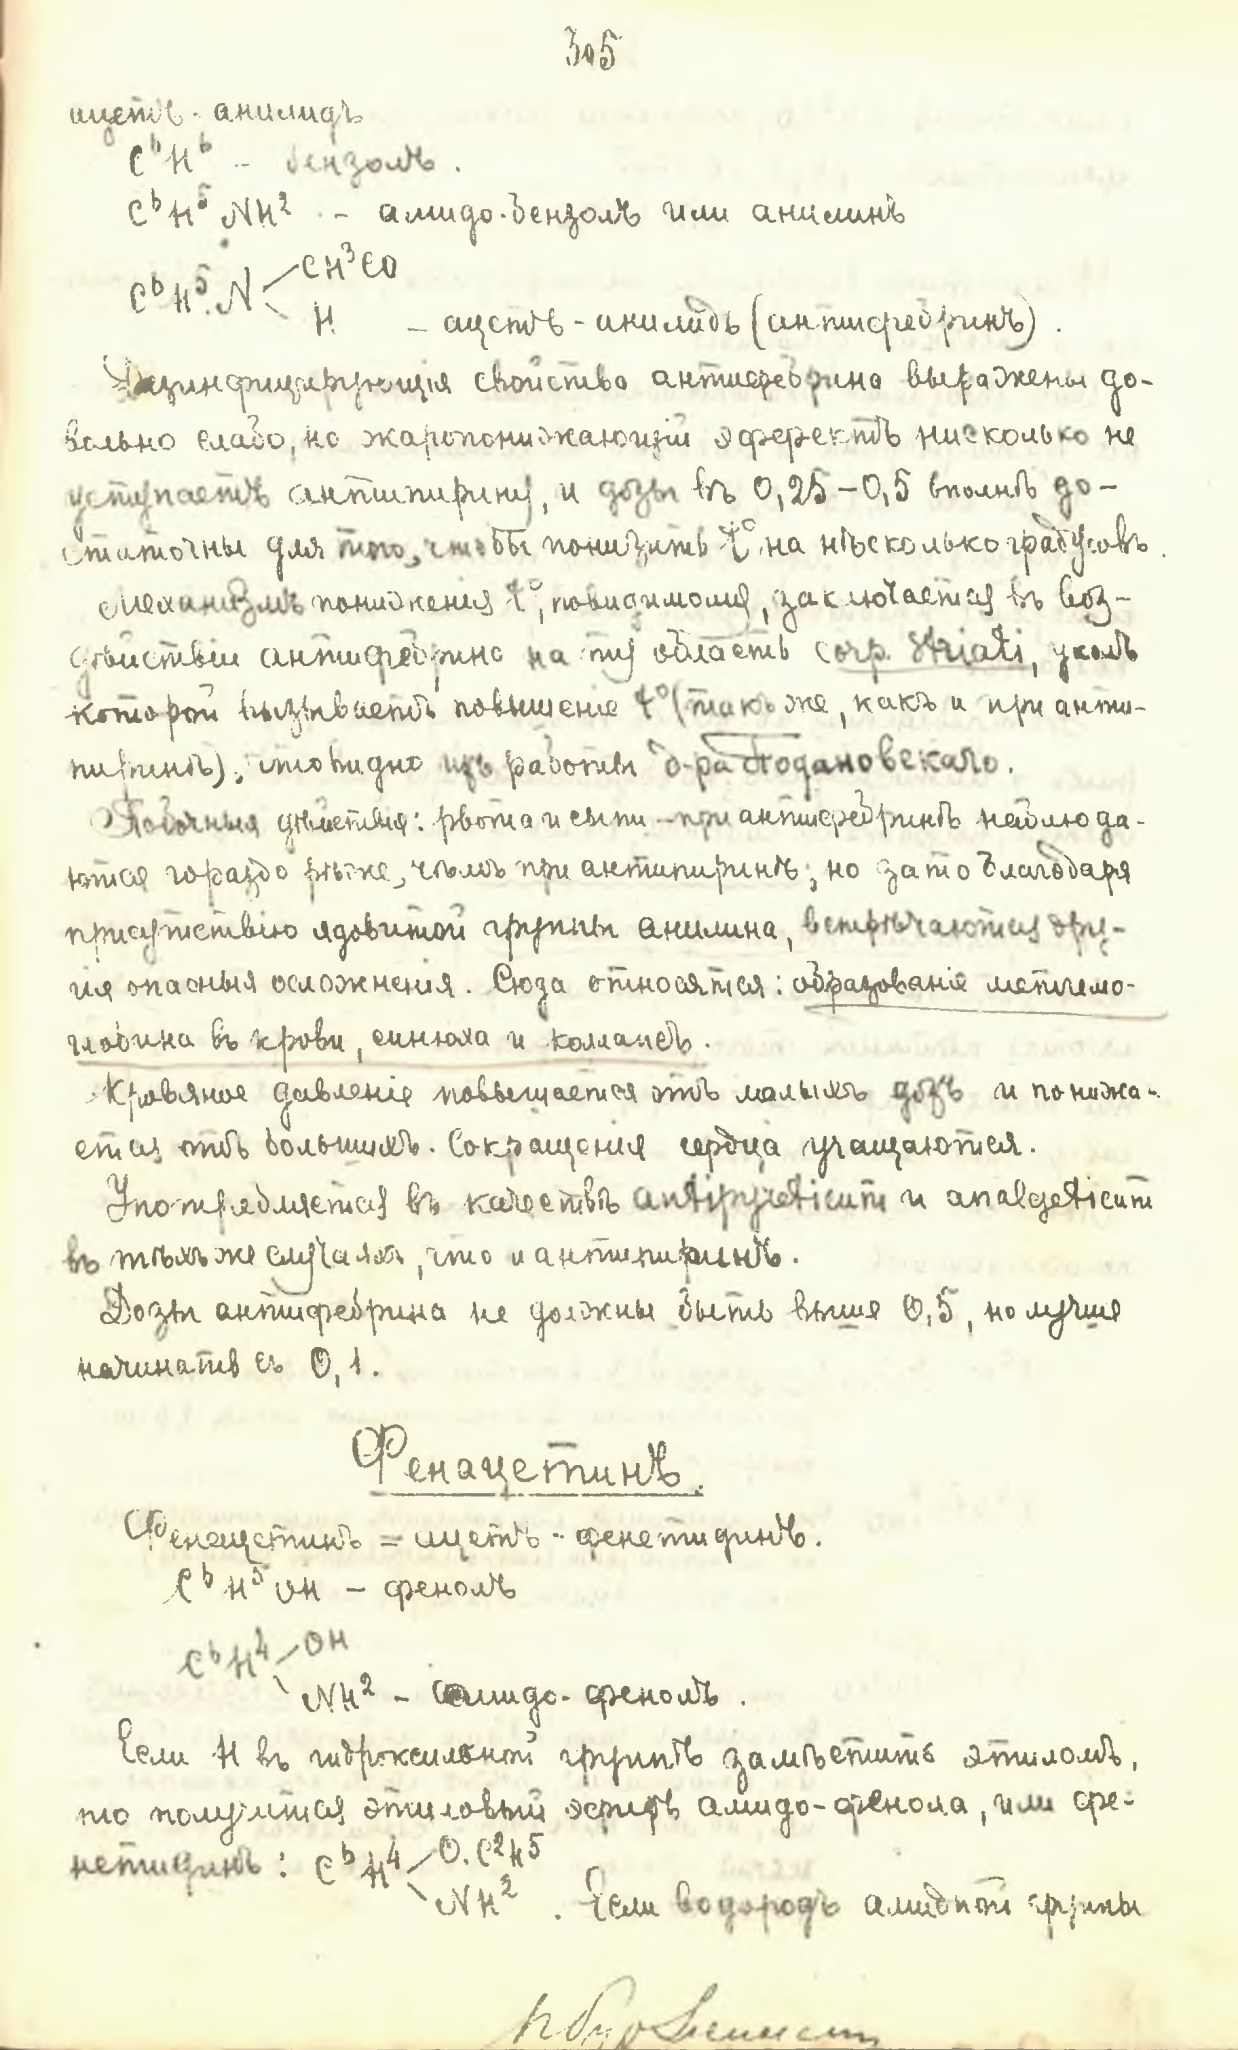 305
ацетъ-анилидъ
C⁶H⁶ - бензолъ.
C⁶H⁵NH² - амидо-бензолъ или анилинъ
C⁶H⁵.N CH³CO
H - ацетъ-анилидъ (антифебринъ).
Дезинфицирующія свойства антифебрина выражены до-
вольно слабо, но жаропонижающій эффектъ нисколько не
уступаетъ антипирину, и дозы въ 0,25-0,5 вполнѣ до-
статочны для того, чтобы понизить t° на нѣсколько градусовъ.
Механизмъ пониженія t°, повидимому, заключается въ воз-
дѣйствіи антифебрина на ту область corp. striati, уколъ
которой вызываетъ повышеніе t° (такъ же, какъ и при анти-
пиринѣ), что видно изъ работы д-ра
Побочныя дѣйствія: рвота и сыпи при антифебринѣ наблюда-
ются гораздо рѣже, чѣмъ при антипиринѣ; но зато благодаря
присутствію ядовитой группы анилина, встрѣчаются дру-
гія опасныя осложненія. Сюда относятся: образованіе метгемо-
глобина въ крови, синюха и коллапсъ.
Кровяное давленіе повышается отъ малыхъ дозъ и понижа-
ется отъ большихъ. Сокращенія сердца учащаются.
Употребляется въ качествѣ antipyreticum и analgeticum
въ тѣхъ же случаяхъ, что и антипиринъ.
Дозы антифебрина не должны быть выше 0,5, но лучше
начинать съ 0,1.
Фенацетинъ.
Фенацетинъ = ацетъ-фенетидинъ.
C⁶H⁵OH - фенолъ
C⁶H⁴ OH
NH² - амидо-фенолъ.
Если H въ гидроксильной группѣ замѣстить этиломъ,
то получится этиловый эфиръ амидо-фенола, или фе-
нетидинъ: C⁶H⁴ O.C²H⁵
NH². Если водородъ амидной группы